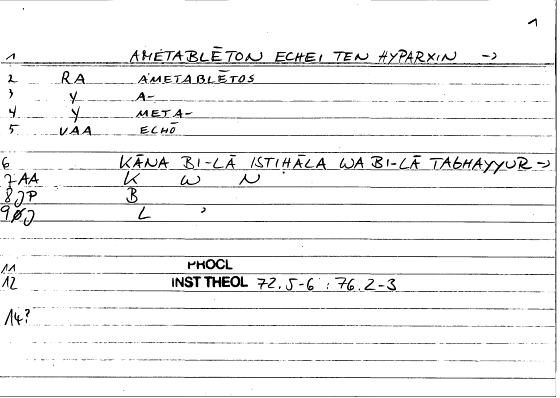 1
1 AMETABLĒTON ECHEI TEN HYPARXIN →
2 RA AMETABLĒTOS
3 Y A-
4 Y META-
5 VAA ECHŌ
6 KĀNA BI-LĀ ISTIḤĀLA WA BI-LĀ TAGHAYYUR →
7 AA K W N
8 JP B
9 L ʾ
11 PROCL
12 INST THEOL 72.5-6 : 76.2-3
14?